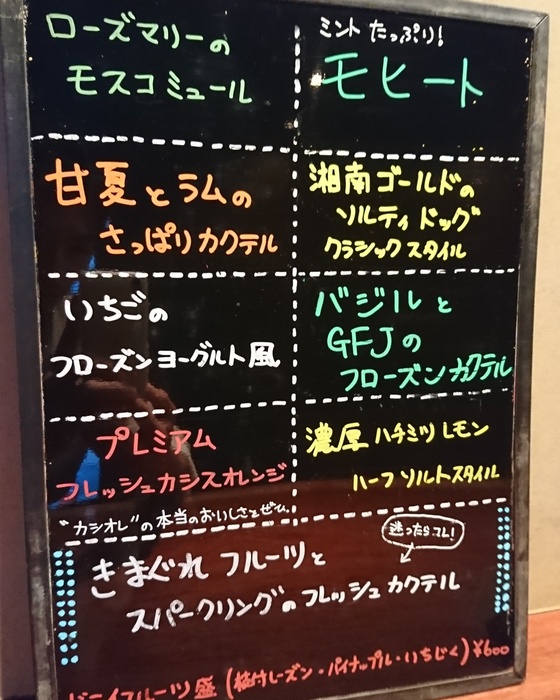 ローズマリーの
モスコミュール
ミントたっぷり!
モヒート
甘夏とラムの
さっぱりカクテル
湘南ゴールドの
ソルティドッグ
クラシックスタイル
いちごの
フローズンヨーグルト風
バジルと
GFJの
フローズンカクテル
プレミアム
フレッシュカシスオレンジ
"カシオレ"の本当のおいしさをぜひ。
濃厚ハチミツレモン
ハーフソルトスタイル
迷ったらコレ!
きまぐれフルーツと
スパークリングのフレッシュカクテル
ドライフルーツ盛(枝付レーズン・パイナップル・いちじく)¥600